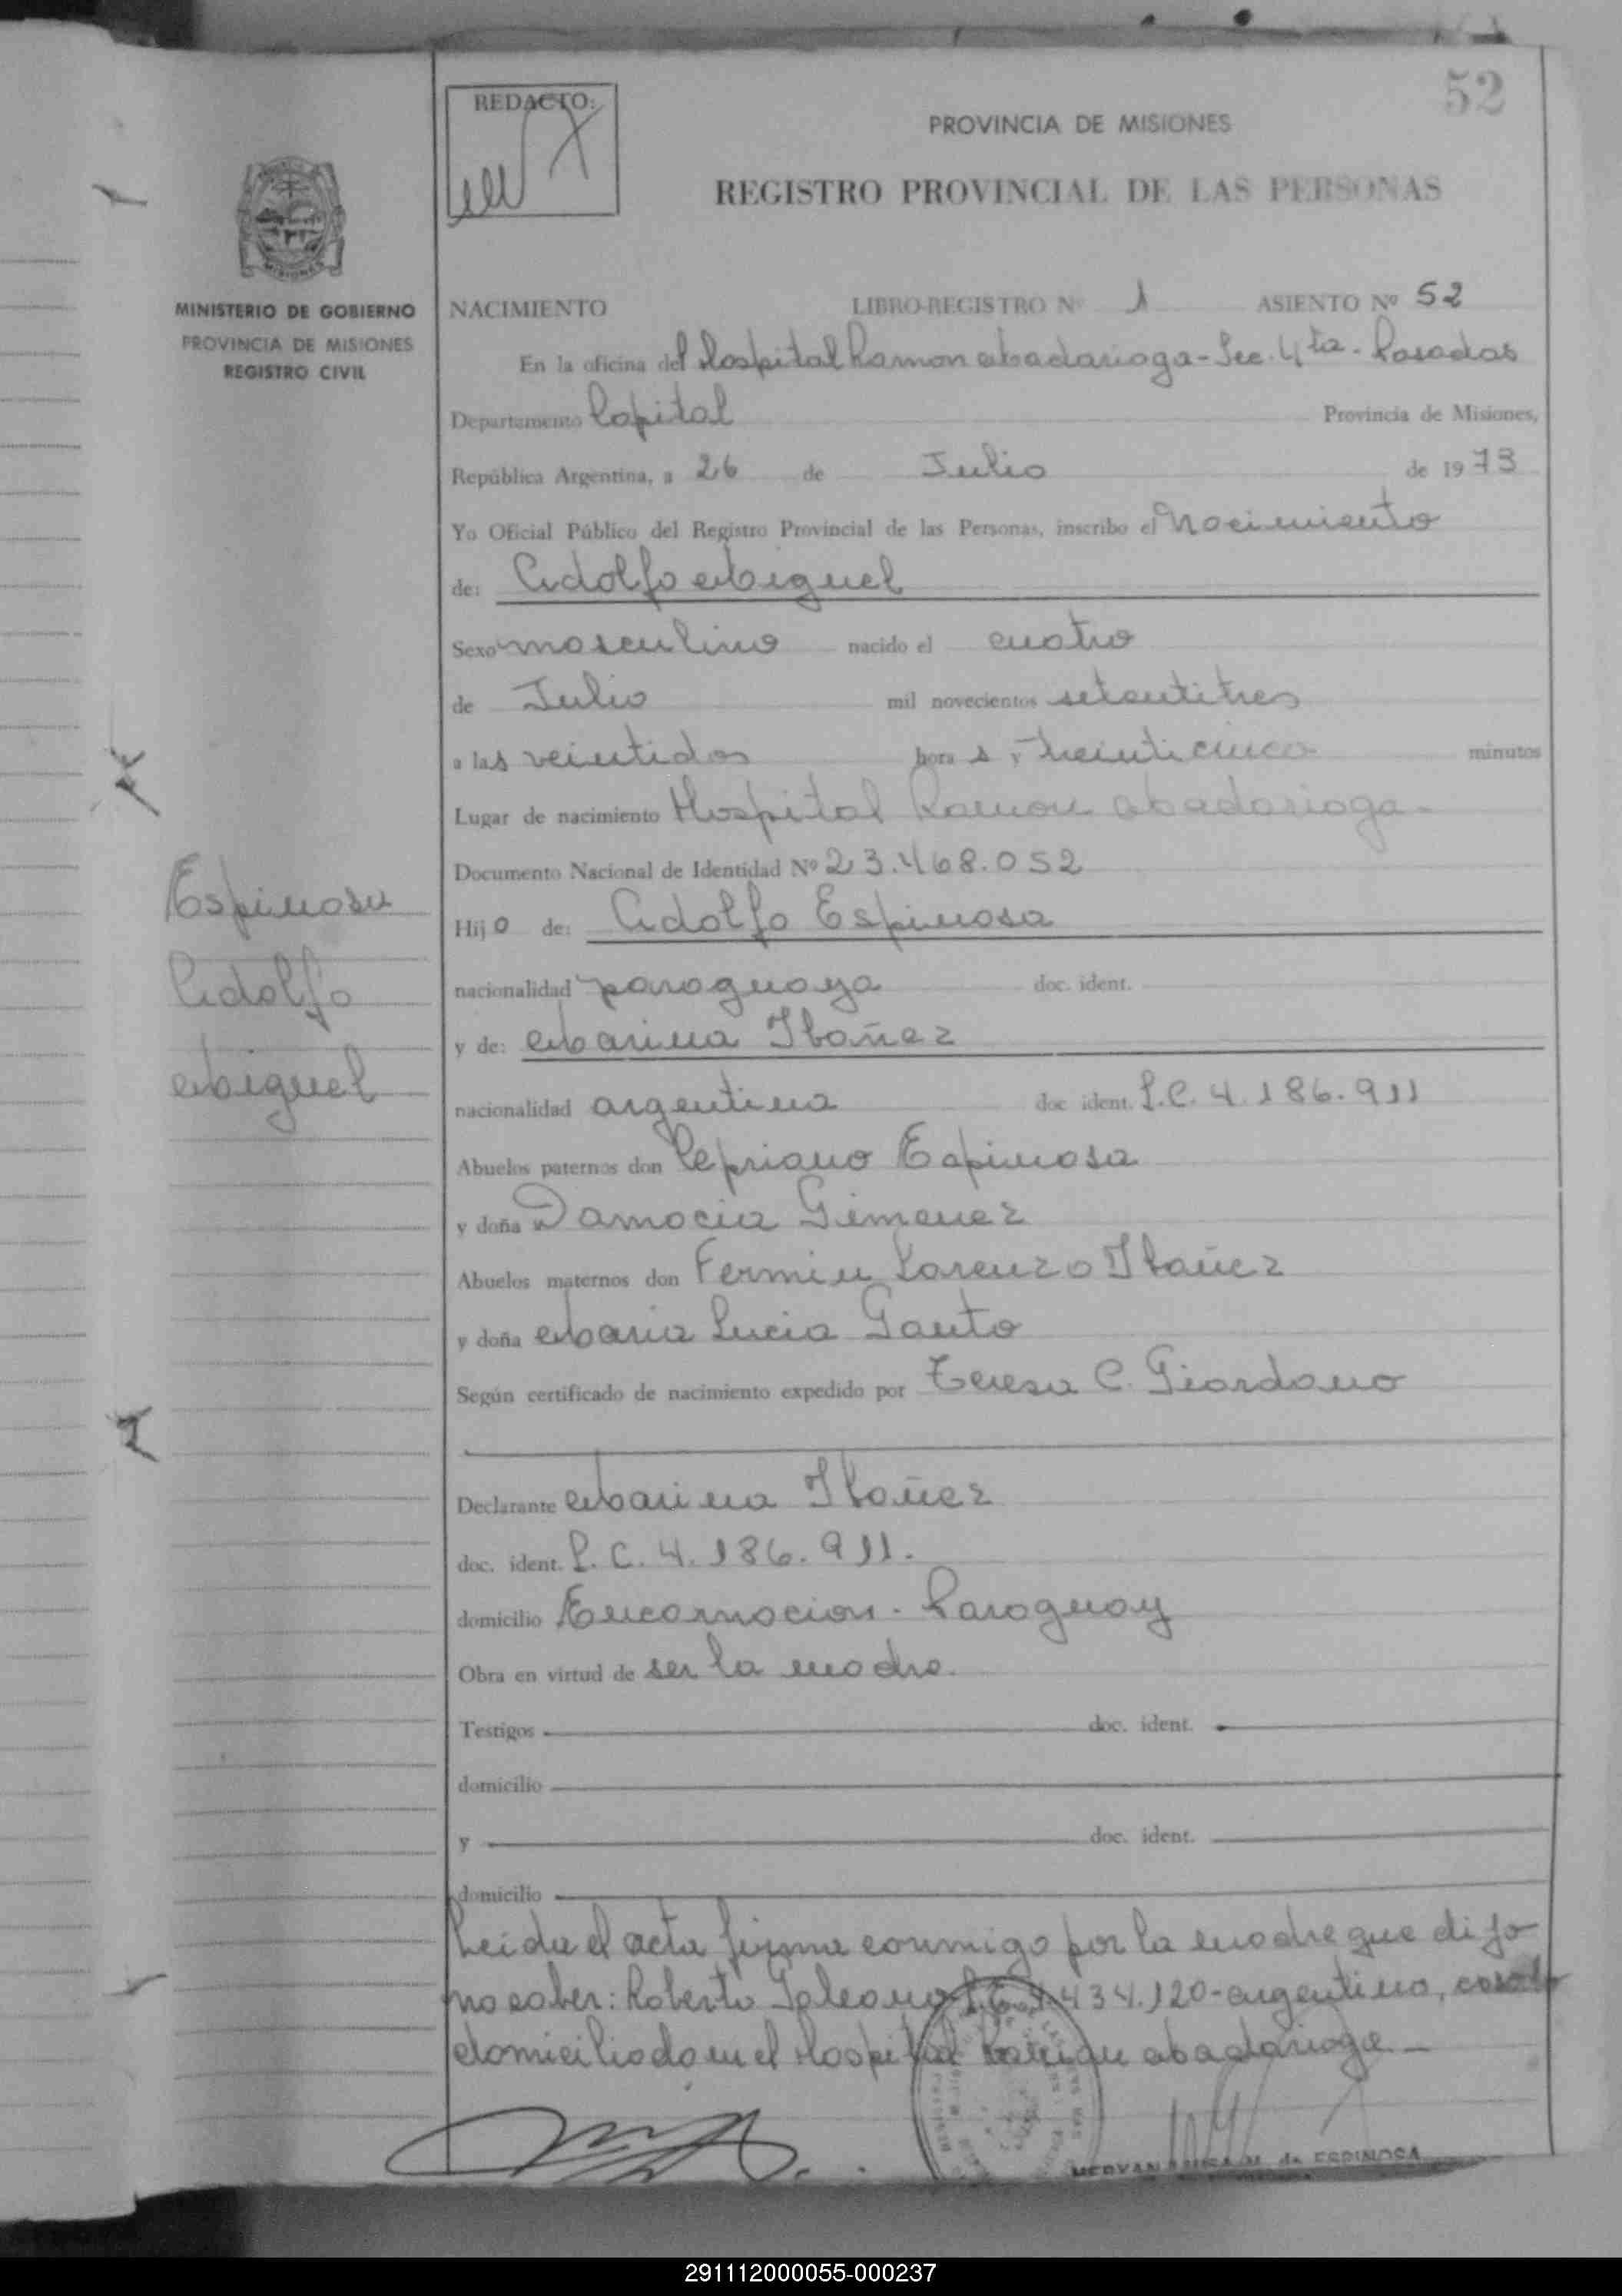 52
REDACTO:
PROVINCIA DE MISIONES
REGISTRO PROVINCIAL DE LAS PERSONAS
MISIONES
MINISTERIO DE GOBIERNO
PROVINCIA DE MISIONES
REGISTRO CIVIL
NACIMIENTO LIBRO-REGISTRO Nº 1 ASIENTO Nº 52
En la oficina del Hospital Ramon Madariaga - Sec. 4ta - Posadas
Departamento Capital Provincia de Misiones,
República Argentina, a 26 de Julio de 1973
Yo Oficial Público del Registro Provincial de las Personas, inscribo el Nacimiento
de: Adolfo Miguel
Sexo masculino nacido el cuatro
de Julio mil novecientos setentitres
a las veintidos horas y treinticinco minutos
Lugar de nacimiento Hospital Ramon Madariaga -
Documento Nacional de Identidad Nº 23.468.052
Hijo de: Adolfo Espinosa
nacionalidad paraguaya doc. ident.
y de: Marina Ibañez
nacionalidad argentina doc ident. L.C. 4.186.911
Abuelos paternos don Cepriano Espinosa
y doña Damocia Gimenez
Abuelos maternos don Fermin Lorenzo Ibañez
y doña Maria Lucia Gauto
Según certificado de nacimiento expedido por Teresa C. Giordano
Declarante Marina Ibañez
doc. ident. L.C. 4.186.911.
domicilio Encarnacion - Paraguay
Obra en virtud de ser la madre.
Testigos doc. ident.
domicilio
y doc. ident.
domicilio
Leida el acta firma conmigo por la madre que dijo
no saber: Roberto Galeano 434.120 - argentino, casado
domiciliado en el Hospital Ramon Madariaga -
Espinosa
Adolfo
Miguel
de ESPINOSA
291112000055-000237